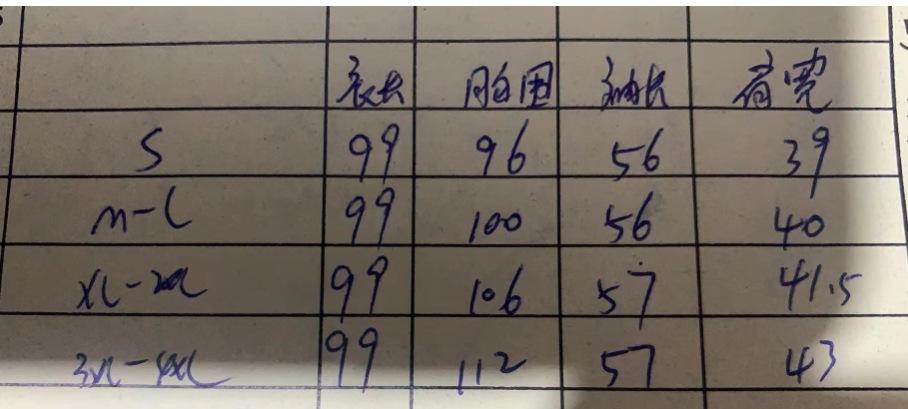 衣长 胸围 袖长 肩宽
S 99 96 56 39
M-L 99 100 56 40
XL-2XL 99 106 57 41.5
3XL-4XL 99 112 57 43